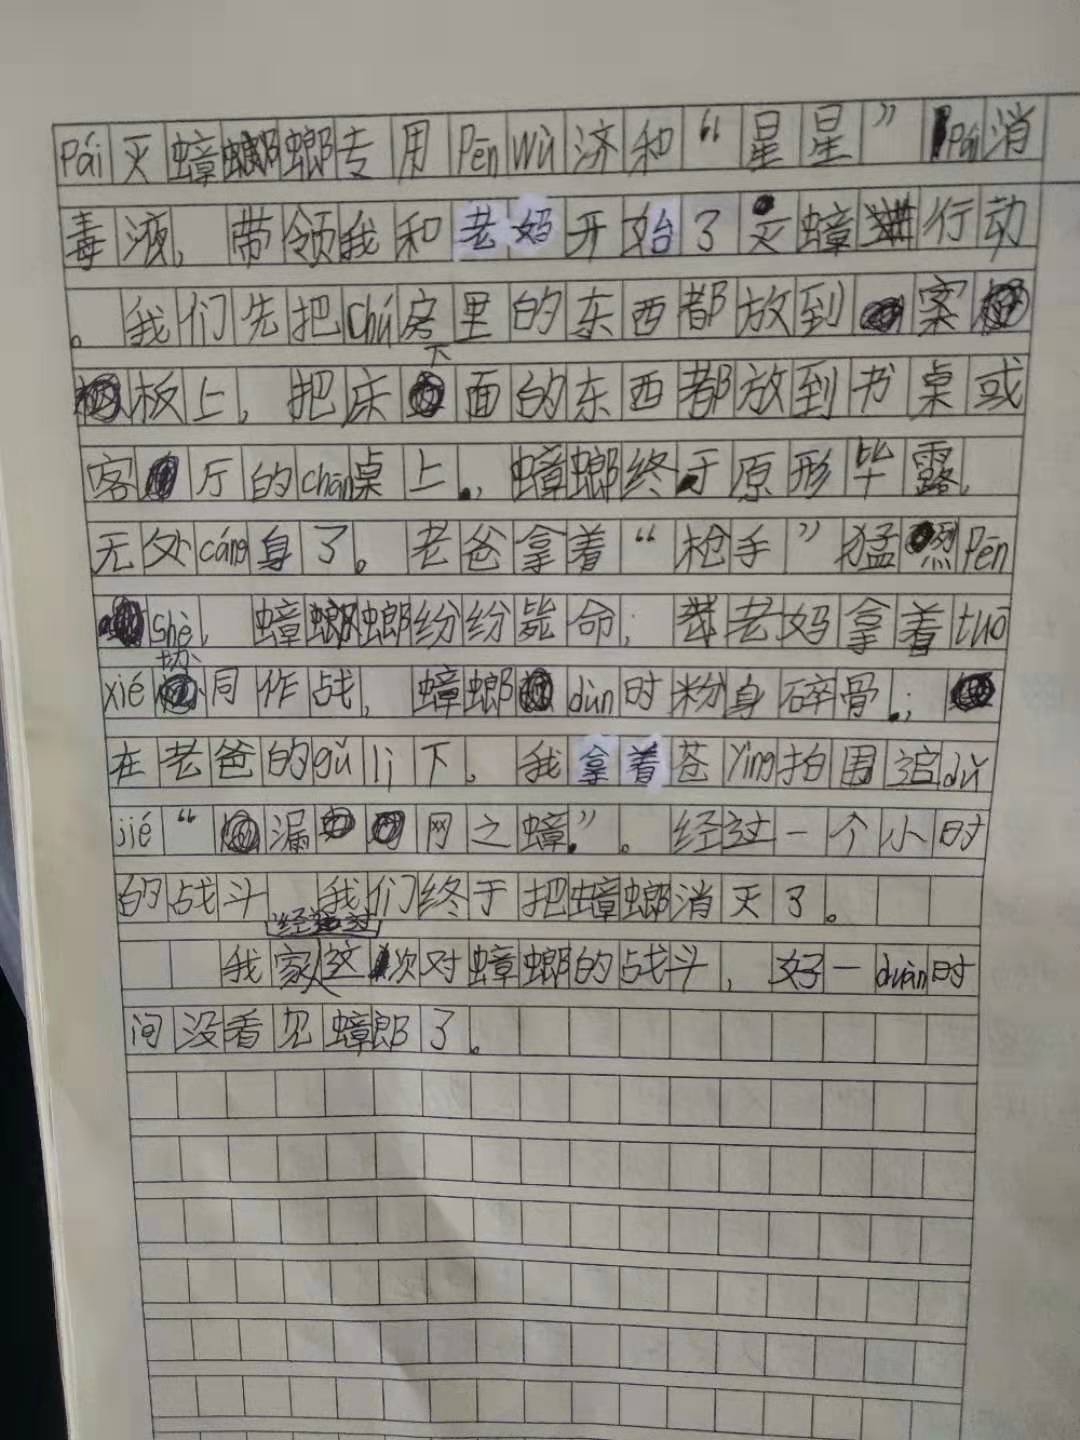 Pái灭蟑螂螂专用Pēn Wù济和“星星”Pái消
毒液，带领我和老妈开始了灭蟑行动
。我们先把Chú房里的东西都放到案
板上，把床下面的东西都放到书桌或
客厅的chān桌上，蟑螂终于原形毕露，
无处cáng身了。老爸拿着“枪手”猛烈Pēn
Shè，蟑螂螂纷纷毙命；老妈拿着tuō
xié协同作战，蟑螂dùn时粉身碎骨；
在老爸的gǔ lì下，我拿着苍ying拍围追dǔ
jié“漏网之蟑”。经过一个小时
的战斗 我们终于把蟑螂消灭了。
经过
我家这次对蟑螂的战斗，好一duàn时
间没看见蟑郎了。